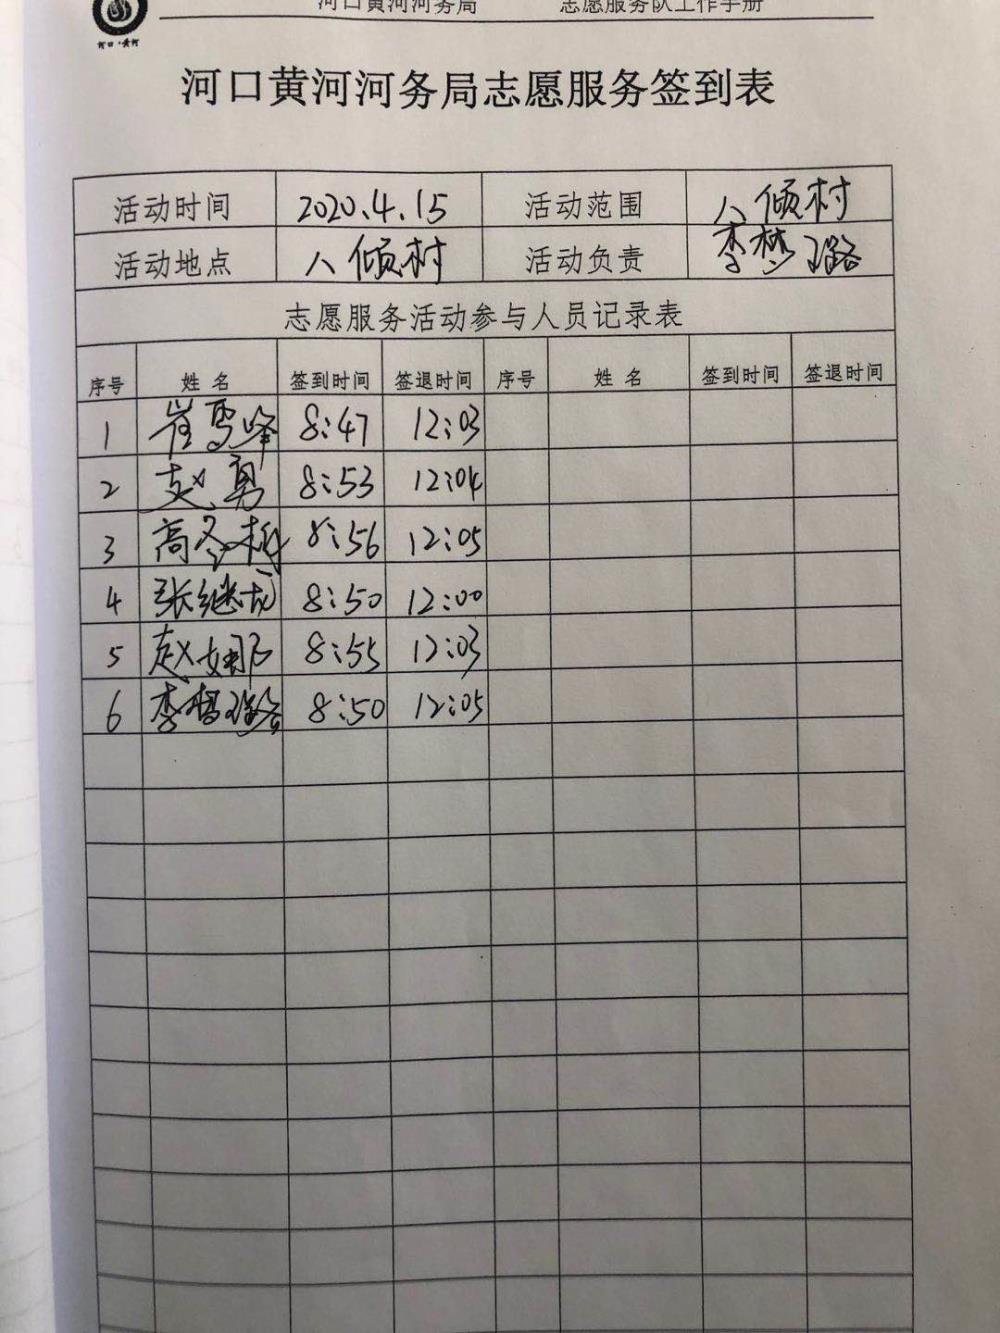 河口·黄河
河口黄河河务局 志愿服务队工作手册
河口黄河河务局志愿服务签到表
活动时间 2020.4.15 活动范围 八顷村
活动地点 八顷村 活动负责 李梦璐
志愿服务活动参与人员记录表
序号 姓名 签到时间 签退时间 序号 姓名 签到时间 签退时间
1 崔雪峰 8:47 12:03
2 赵勇 8:53 12:04
3 高 8:56 12:05
4 张继龙 8:50 12:00
5 赵娜 8:55 12:03
6 李梦璐 8:50 12:05